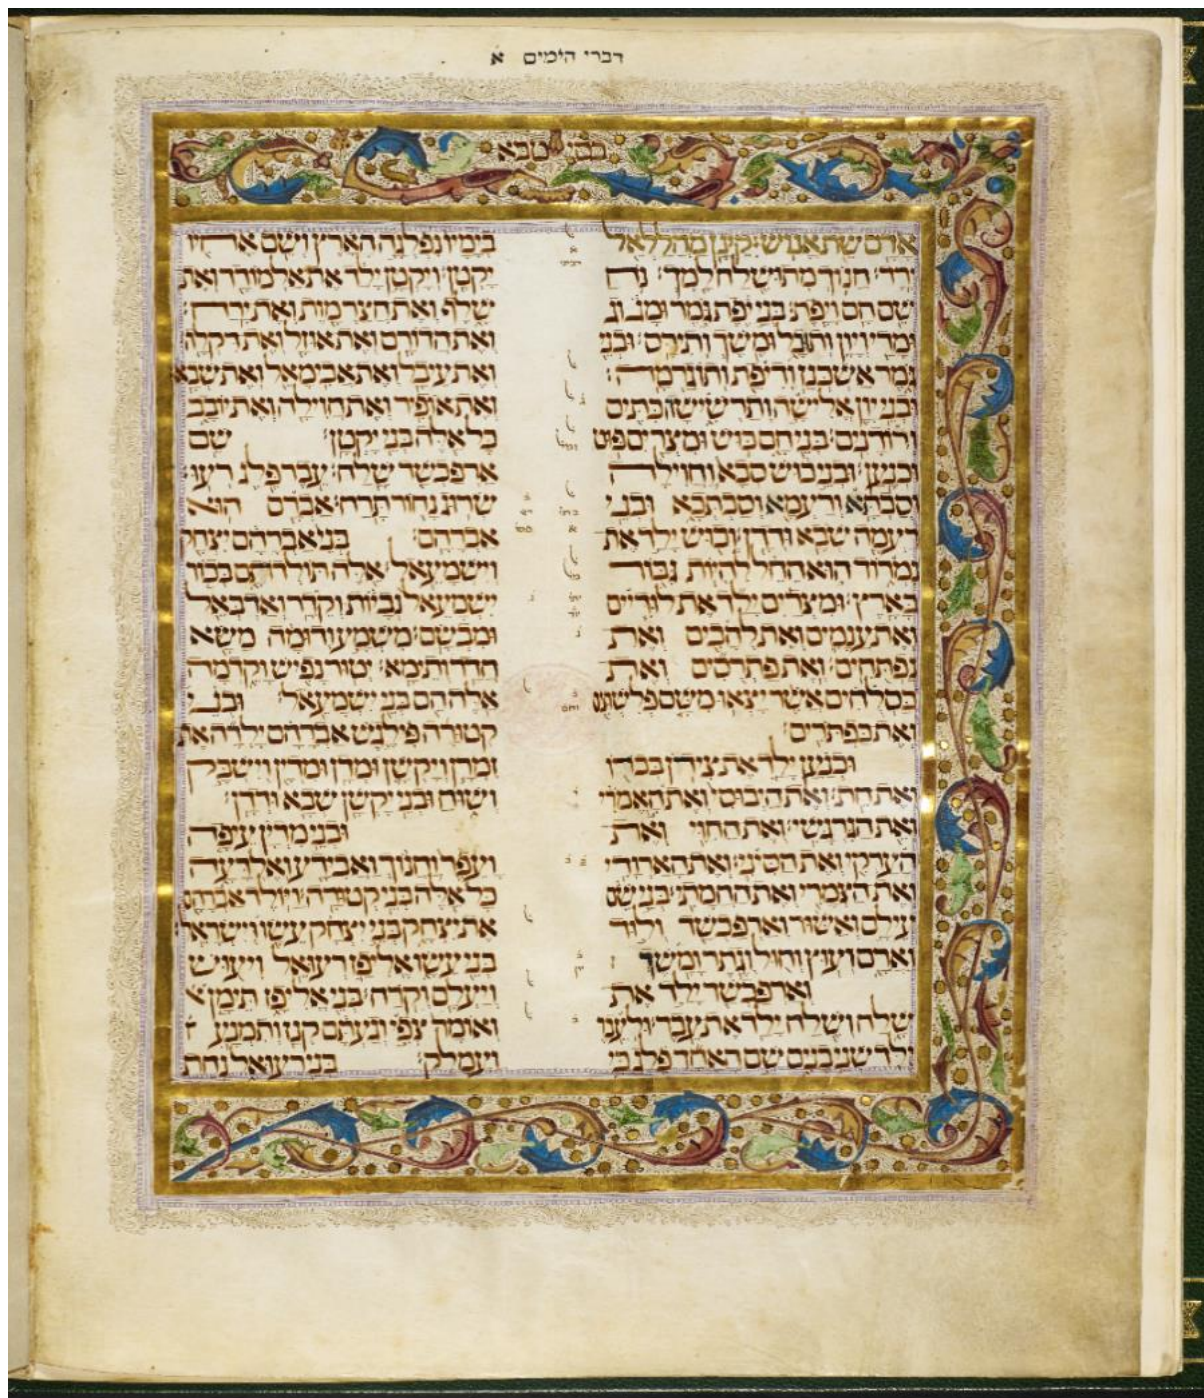 דברי הימים א
בבני טבא
אדם שת אנוש קינן מהללאל
ירד חנוך מתושלח למך נח
שם חם ויפת בני יפת גמר ומגוג
ומדי ויון ותובל ומשך ותירס ובני
גמר אשכנז וריפת ותוגרמה
ובני יון אלישה ותרשישה כתים
ורודנים בני חם כוש ומצרים פוט
וכנען ובני כוש סבא וחוילה
וסבתא ורעמא וסבתכא ובני
רעמה שבא ודדן וכוש ילד את
נמרוד הוא החל להיות גבור
בארץ ומצרים ילד את לודיים
ואת ענמים ואת להבים ואת
נפתחים ואת פתרסים ואת
כסלחים אשר יצאו משם פלשתים
ואת כפתרים
וכנען ילד את צידון בכרו
ואת חת ואת היבוסי ואת האמרי
ואת הגרגשי ואת החוי ואת
הערקי ואת הסיני ואת הארודי
ואת הצמרי ואת החמתי בני שם
עילם ואשור וארפכשד ולוד
וארם ועוץ וחול וגתר ומשך
וארפכשד ילד את
שלח ושלח ילד את עבר ולעבר
ילד שני בנים שם האחד פלג כי
בימיו נפלגה הארץ ושם אחיו
יקטן ויקטן ילד את אלמודד ואת
שלף ואת חצרמות ואת ירח
ואת הדורם ואת אוזל ואת דקלה
ואת עיבל ואת אבימאל ואת שבא
ואת אופיר ואת חוילה ואת יובב
כל אלה בני יקטן שם
ארפכשד שלח עבר פלג רעו
שרוג נחור תרח אברם הוא
אברהם בני אברהם יצחק
וישמעאל אלה תולדותם בכור
ישמעאל נביות וקדר ואדבאל
ומבשם משמע ודומה משא
חדד ותימא יטור נפיש וקדמה
אלה הם בני ישמעאל ובני
קטורה פילגש אברהם ילדה את
זמרן ויקשן ומדן ומדין וישבק
ושוח ובני יקשן שבא ודדן
ובני מדין עיפה
ועפר וחנוך ואבידע ואלדעה
כל אלה בני קטורה ויולד אברהם
את יצחק בני יצחק עשו וישראל
בני עשו אליפז רעואל ויעוש
ויעלם וקרח בני אליפז תימן
ואומר צפי וגעתם קנז ותמנע
ועמלק בני רעואל נחת